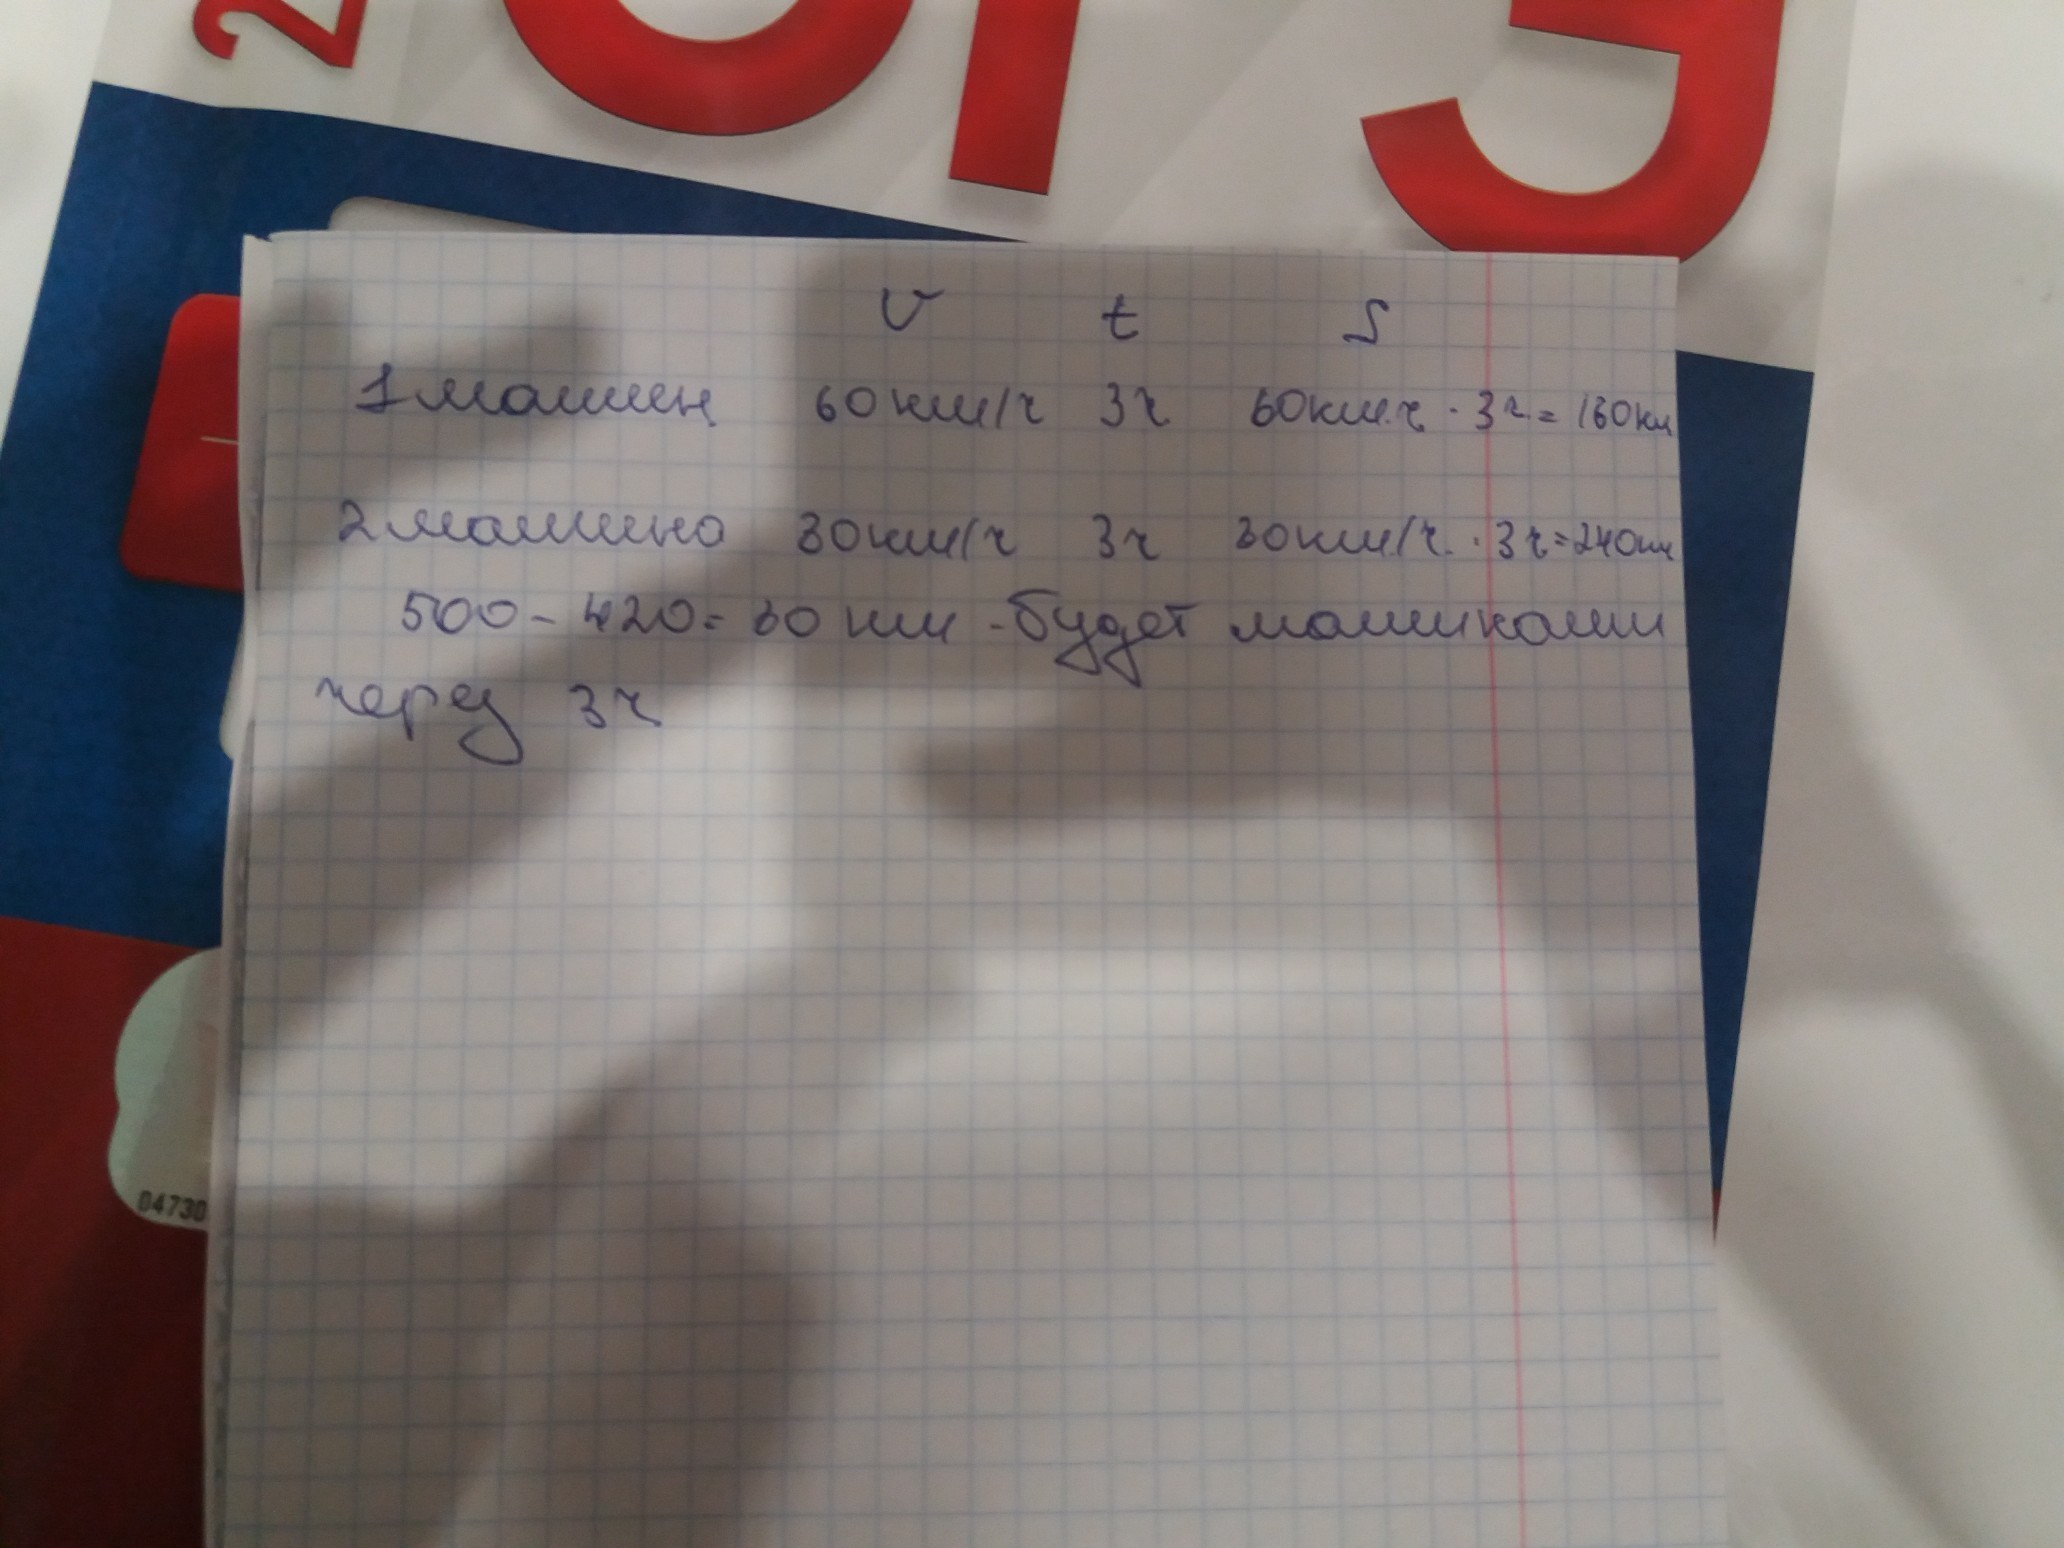 ОГЭ
v t S
1 машин 60 км/ч 3ч 60км.ч · 3ч = 180км
2 машина 80км/ч 3ч 80км/ч · 3ч = 240км
500 - 420 = 80 км - будет машинами
через 3ч
04730